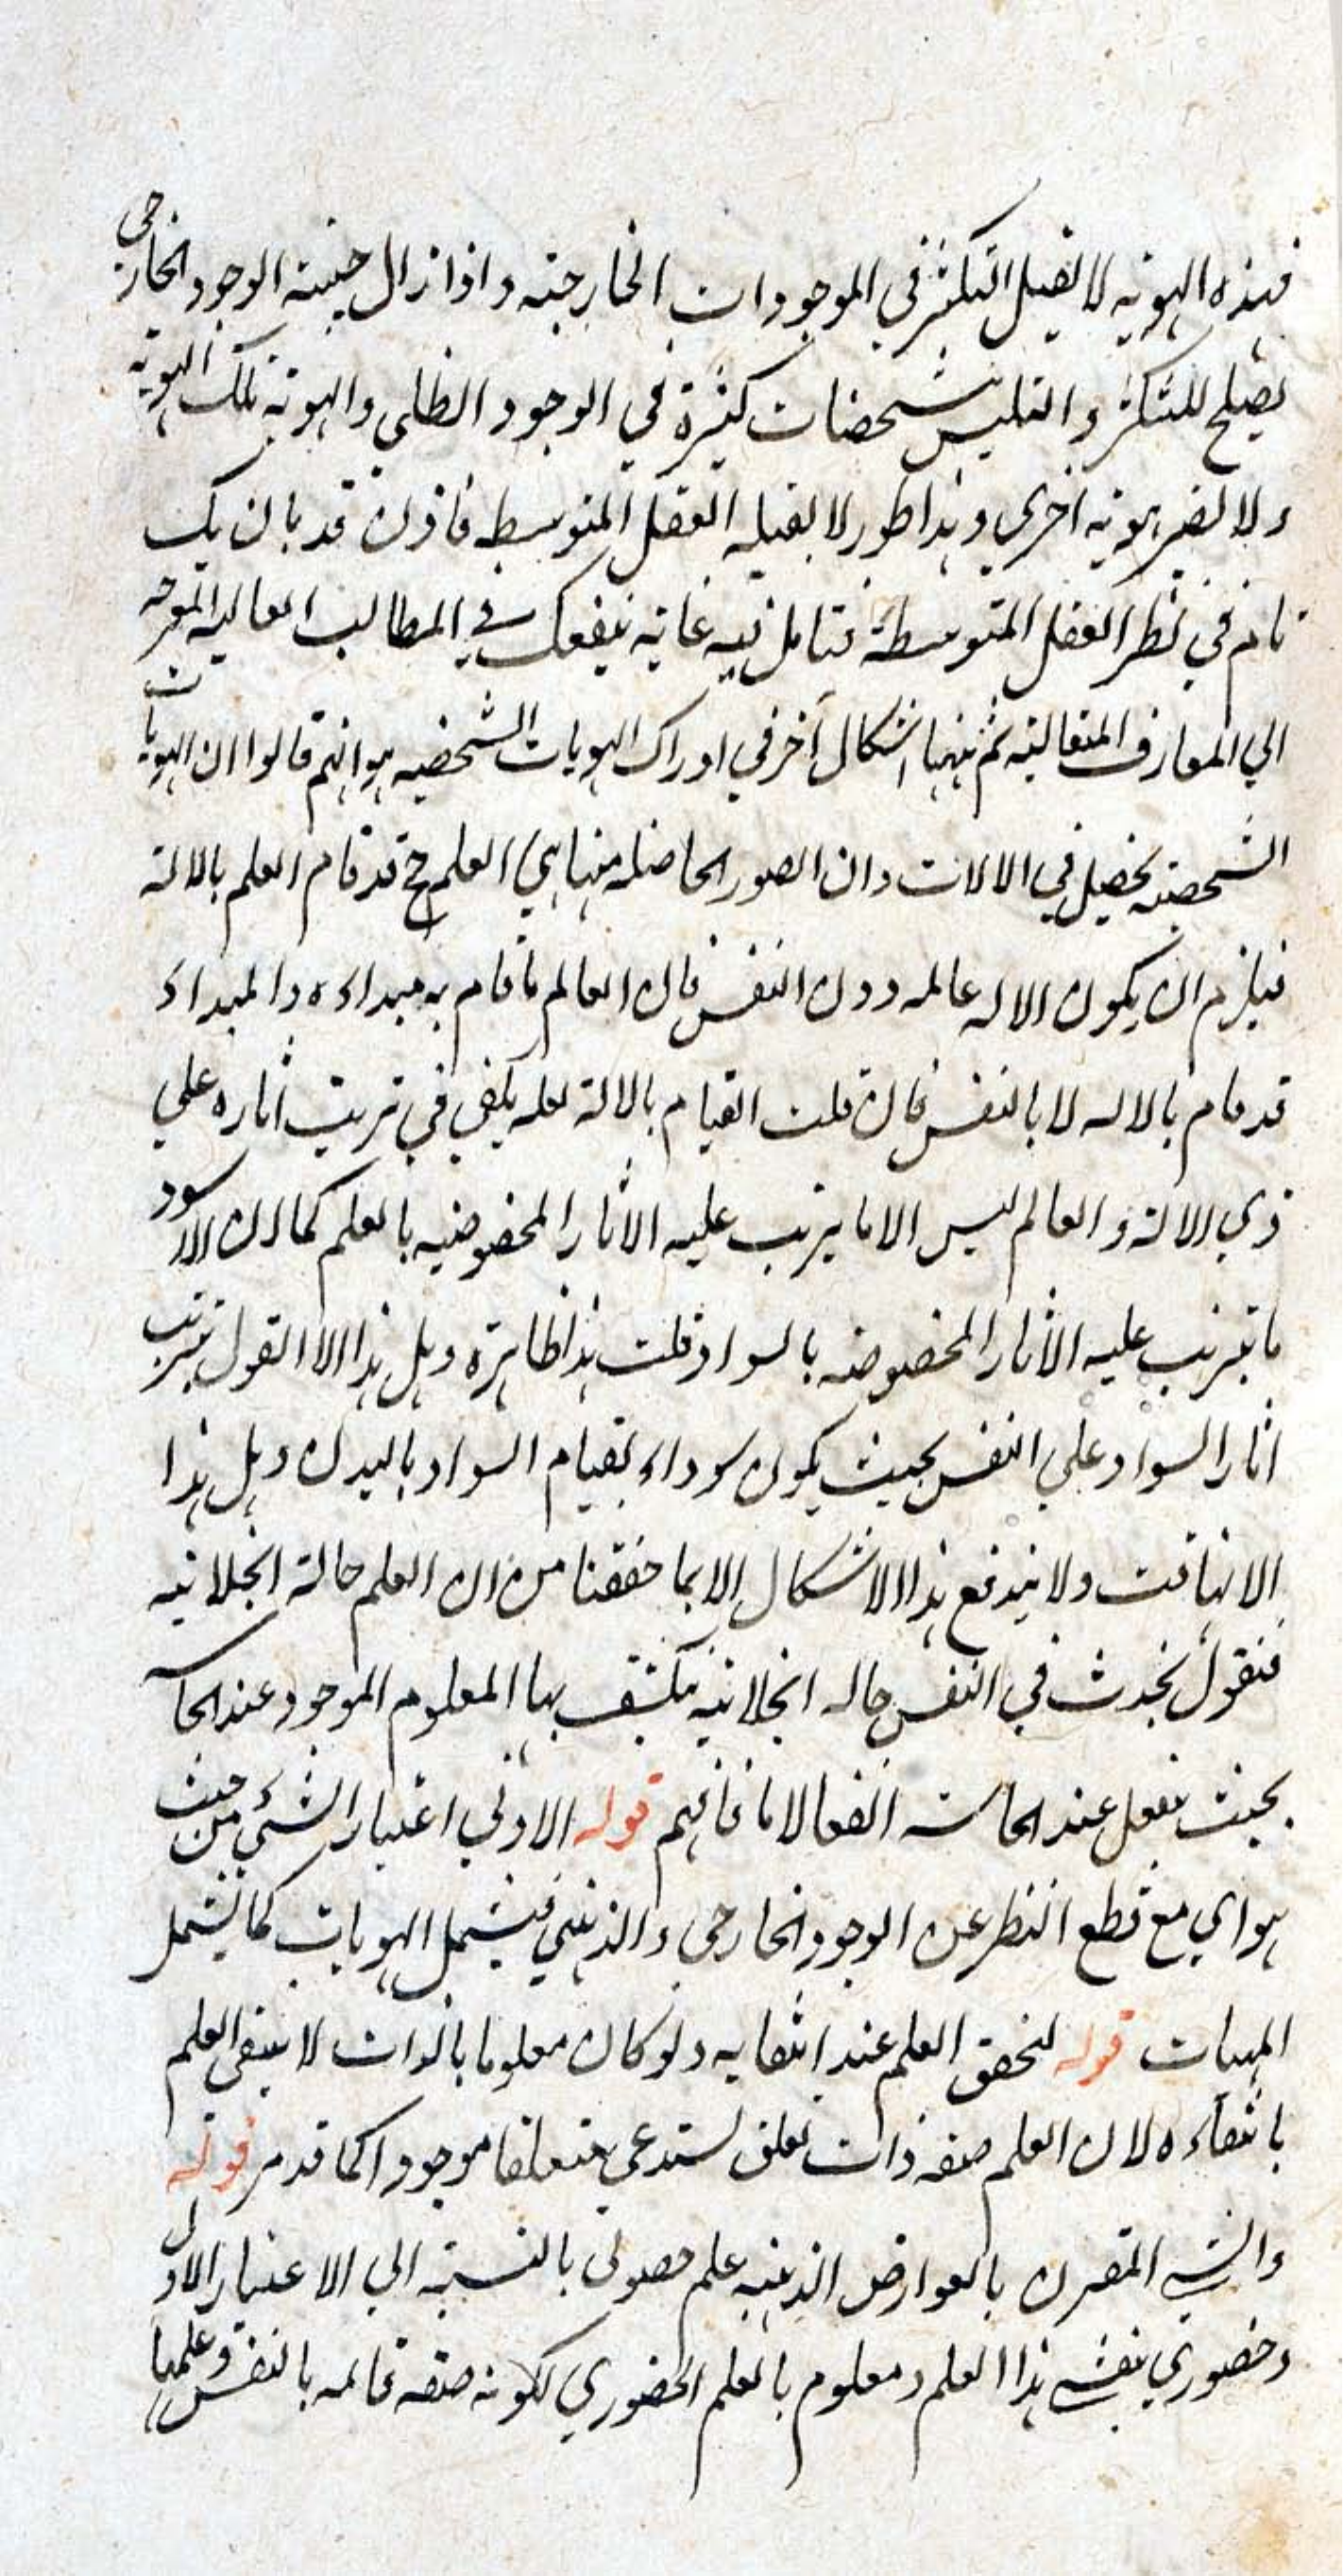 فهذه الهوية لا تقبل التكثر في الموجودات الخارجية واذا زال حيثية الوجود الخارجي
يصلح للتكثر والتلبس بتشخصات كثيرة في الوجود الظلي والهوية تلك الهوية
ولا تصير هوية اخري وهذا طور لا يقبله العقل المتوسطه فاذن قد بان بك
تام في نظر العقل المتوسطة فتامل فيه غاية ينفعك في المطالب العالية
الي المعارف المتعالية ثم ههنا اشكال آخر في ادراك الهويات الشخصيه هو انهم قالوا ان الهويات
الشخصية تحصل في الالات وان الصور الحاصله منها هي العلم ح قد قام العلم بالالة
فيلزم ان يكون الاله عالمه دون النفس فان العالم ما قام به مبداءه والمبداء
قد قام بالاله لا بالنفس فان قلت القيام بالالة لعله يكفي في ترتب اثاره علي
ذي الالة والعالم ليس الا ما يترتب عليه الاثار المخصوصه بالعلم كما ان الاسود
ما تيرتب عليه الاثار المخصوصه بالسواد قلت هذا ظاهره وهل هذا الا القول بترتب
اثار السواد علي النفس بحيث يكون سوداء بقيام السواد بالبدن وهل هذا
الا تهافت ولا يندفع هذا الاشكال الا بما حققنا من ان العلم حالة انجلائيه
فنقول تحدث في النفس حاله انجلائية ينكشف بها المعلوم الموجود عند الحاسة
بحيث تفعل عند الحاسه انفعالا ما فافهم قوله الاولي اعتبار الشئي من حيث
هو اي مع قطع النظر عن الوجود الخارجي والذهني فيشمل الهويات كما يشمل
المهيات قوله لتحقق العلم عند انتفايه ولو كان معلوما بالذات لا ينتفي العلم
بانتفاءه لان العلم صفه ذات تعلق تستدعي متعلقا موجودا كما قد مر قوله
والشي المقترن بالعوارض الذهنيه علم حصولي بالنسبة الي الاعتبار الاول
وحضوري بنفسه هذا العلم ومعلوم بالعلم الحضوري لكونه صفة قائمه بالنفس وعلمها